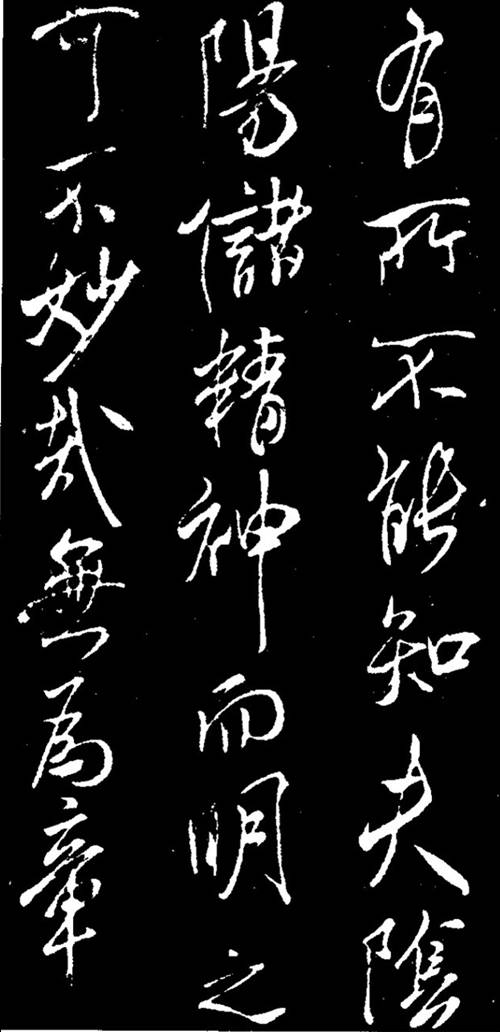 有所不能知夫陰
陽儲精神而明之
可不妙哉無為章